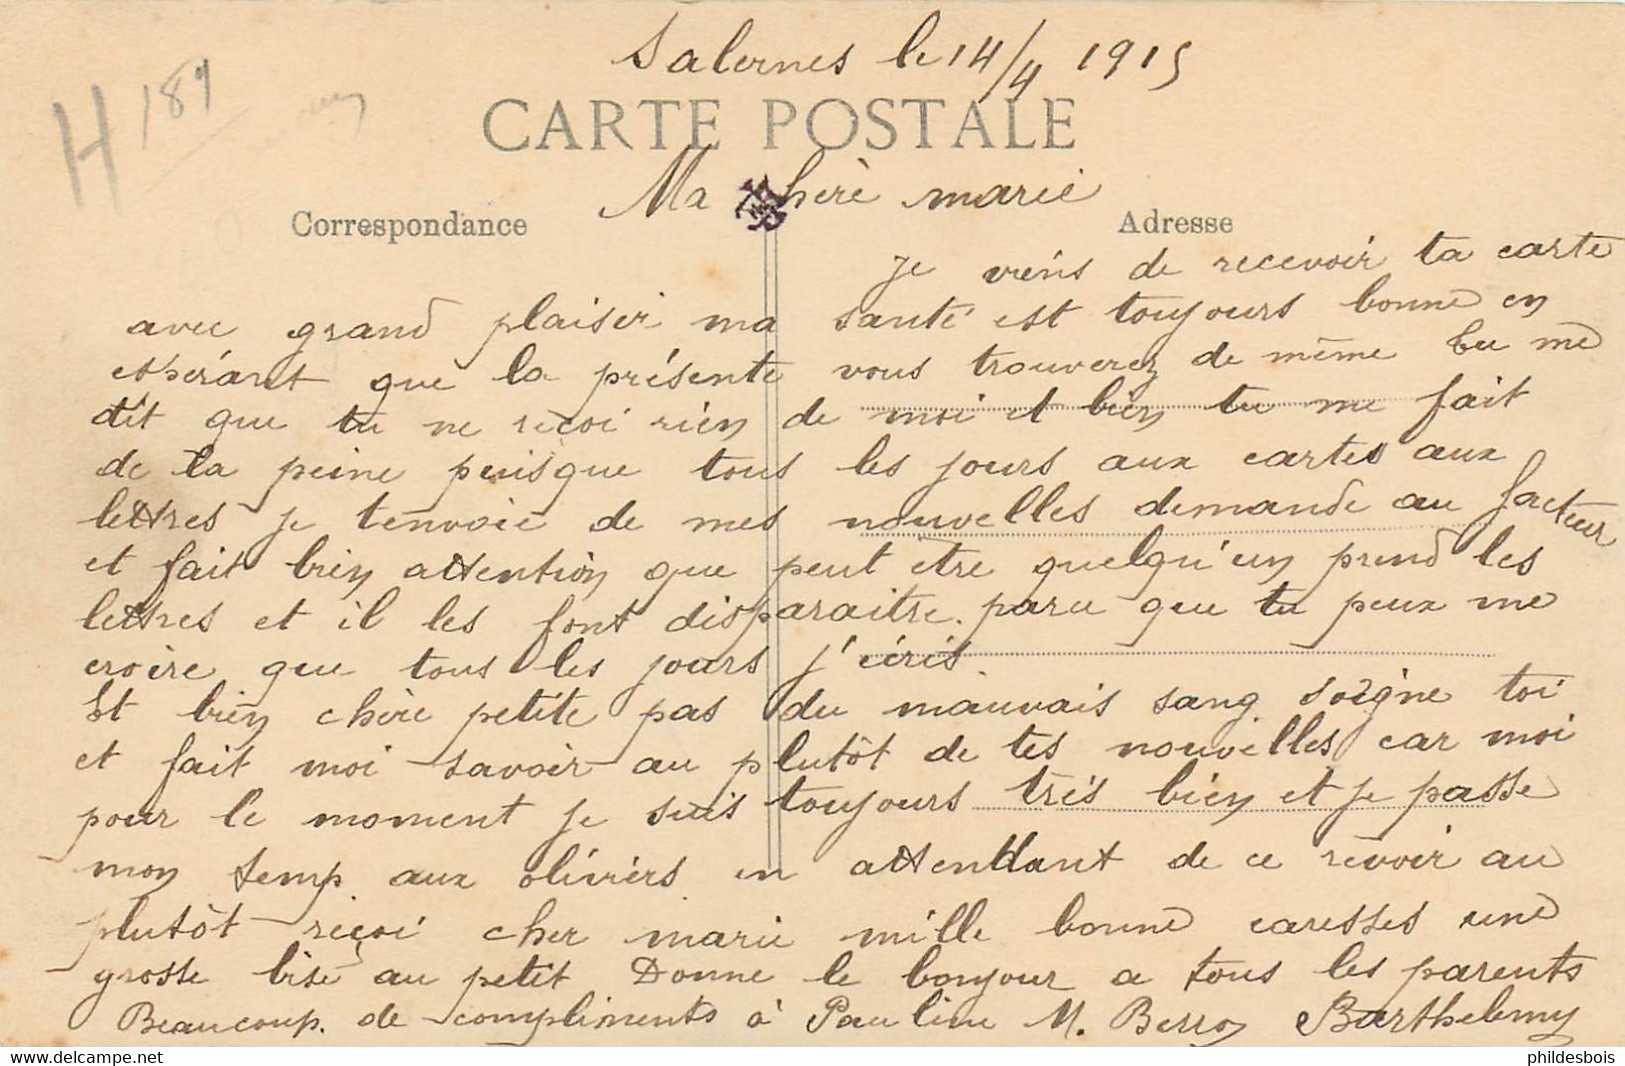 Salernes le 14/4 1915
H 189
CARTE POSTALE
Ma chère marie
Correspondance
Adresse
je viens de recevoir ta carte
avec grand plaisir ma santé est toujours bonne en
espérant que la présente vous trouverez de même tu me
dit que tu ne reçoi rien de moi et bien tu me fait
de la peine puisque tous les jours aux cartes aux
lettres je t'envoie de mes nouvelles demande au facteur
et fait bien attention que peut être quelqu'un prend les
lettres et il les font disparaitre. parce que tu peux me
croire que tous les jours j'écris
Et bien chère petite pas du mauvais sang soigne toi
et fait moi savoir au plutôt de tes nouvelles car moi
pour le moment je suis toujours très bien et je passe
mon temp aux oliviers en attendant de ce revoir au
plutôt reçoi cher marie mille bonne caresses une
grosse bise au petit Donne le bonjour a tous les parents
Beaucoup de compliments à Pauline M. Barthelemy
www.delcampe.net
phildesbois